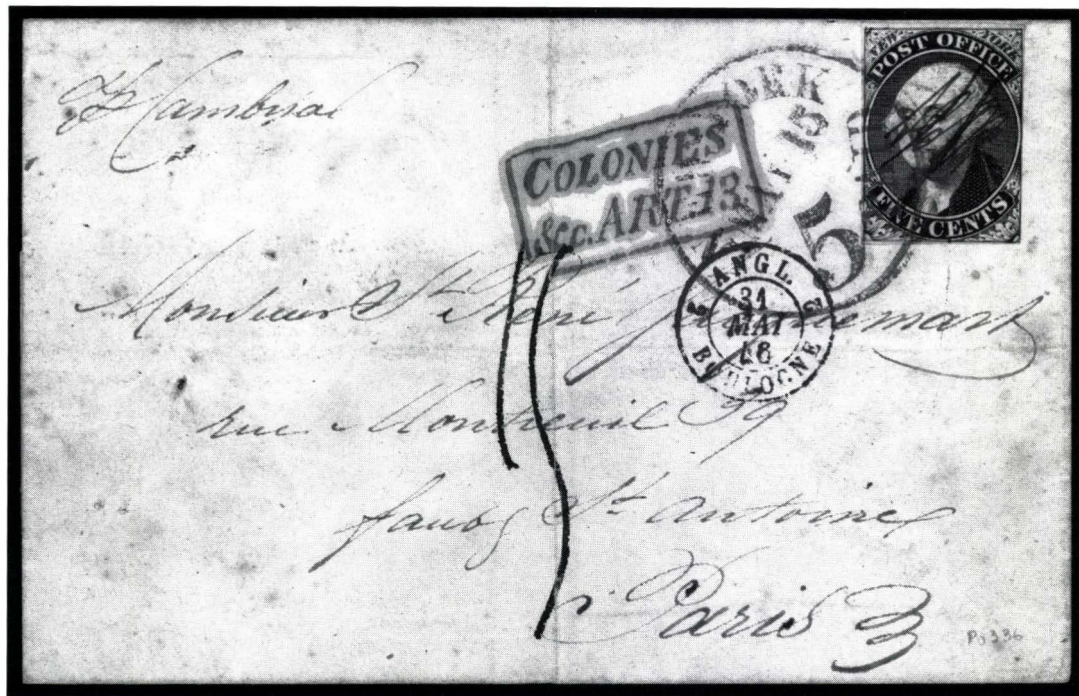 Pr Cambria
POST OFFICE
FIVE CENTS
MAY 15
5
COLONIES
&c. ART. 13.
2 ANGL. 2
31
MAI
46
BOULOGNE
Monsieur St René
rue Montreuil 39
faubg St Antoine
Paris 3
P. 336